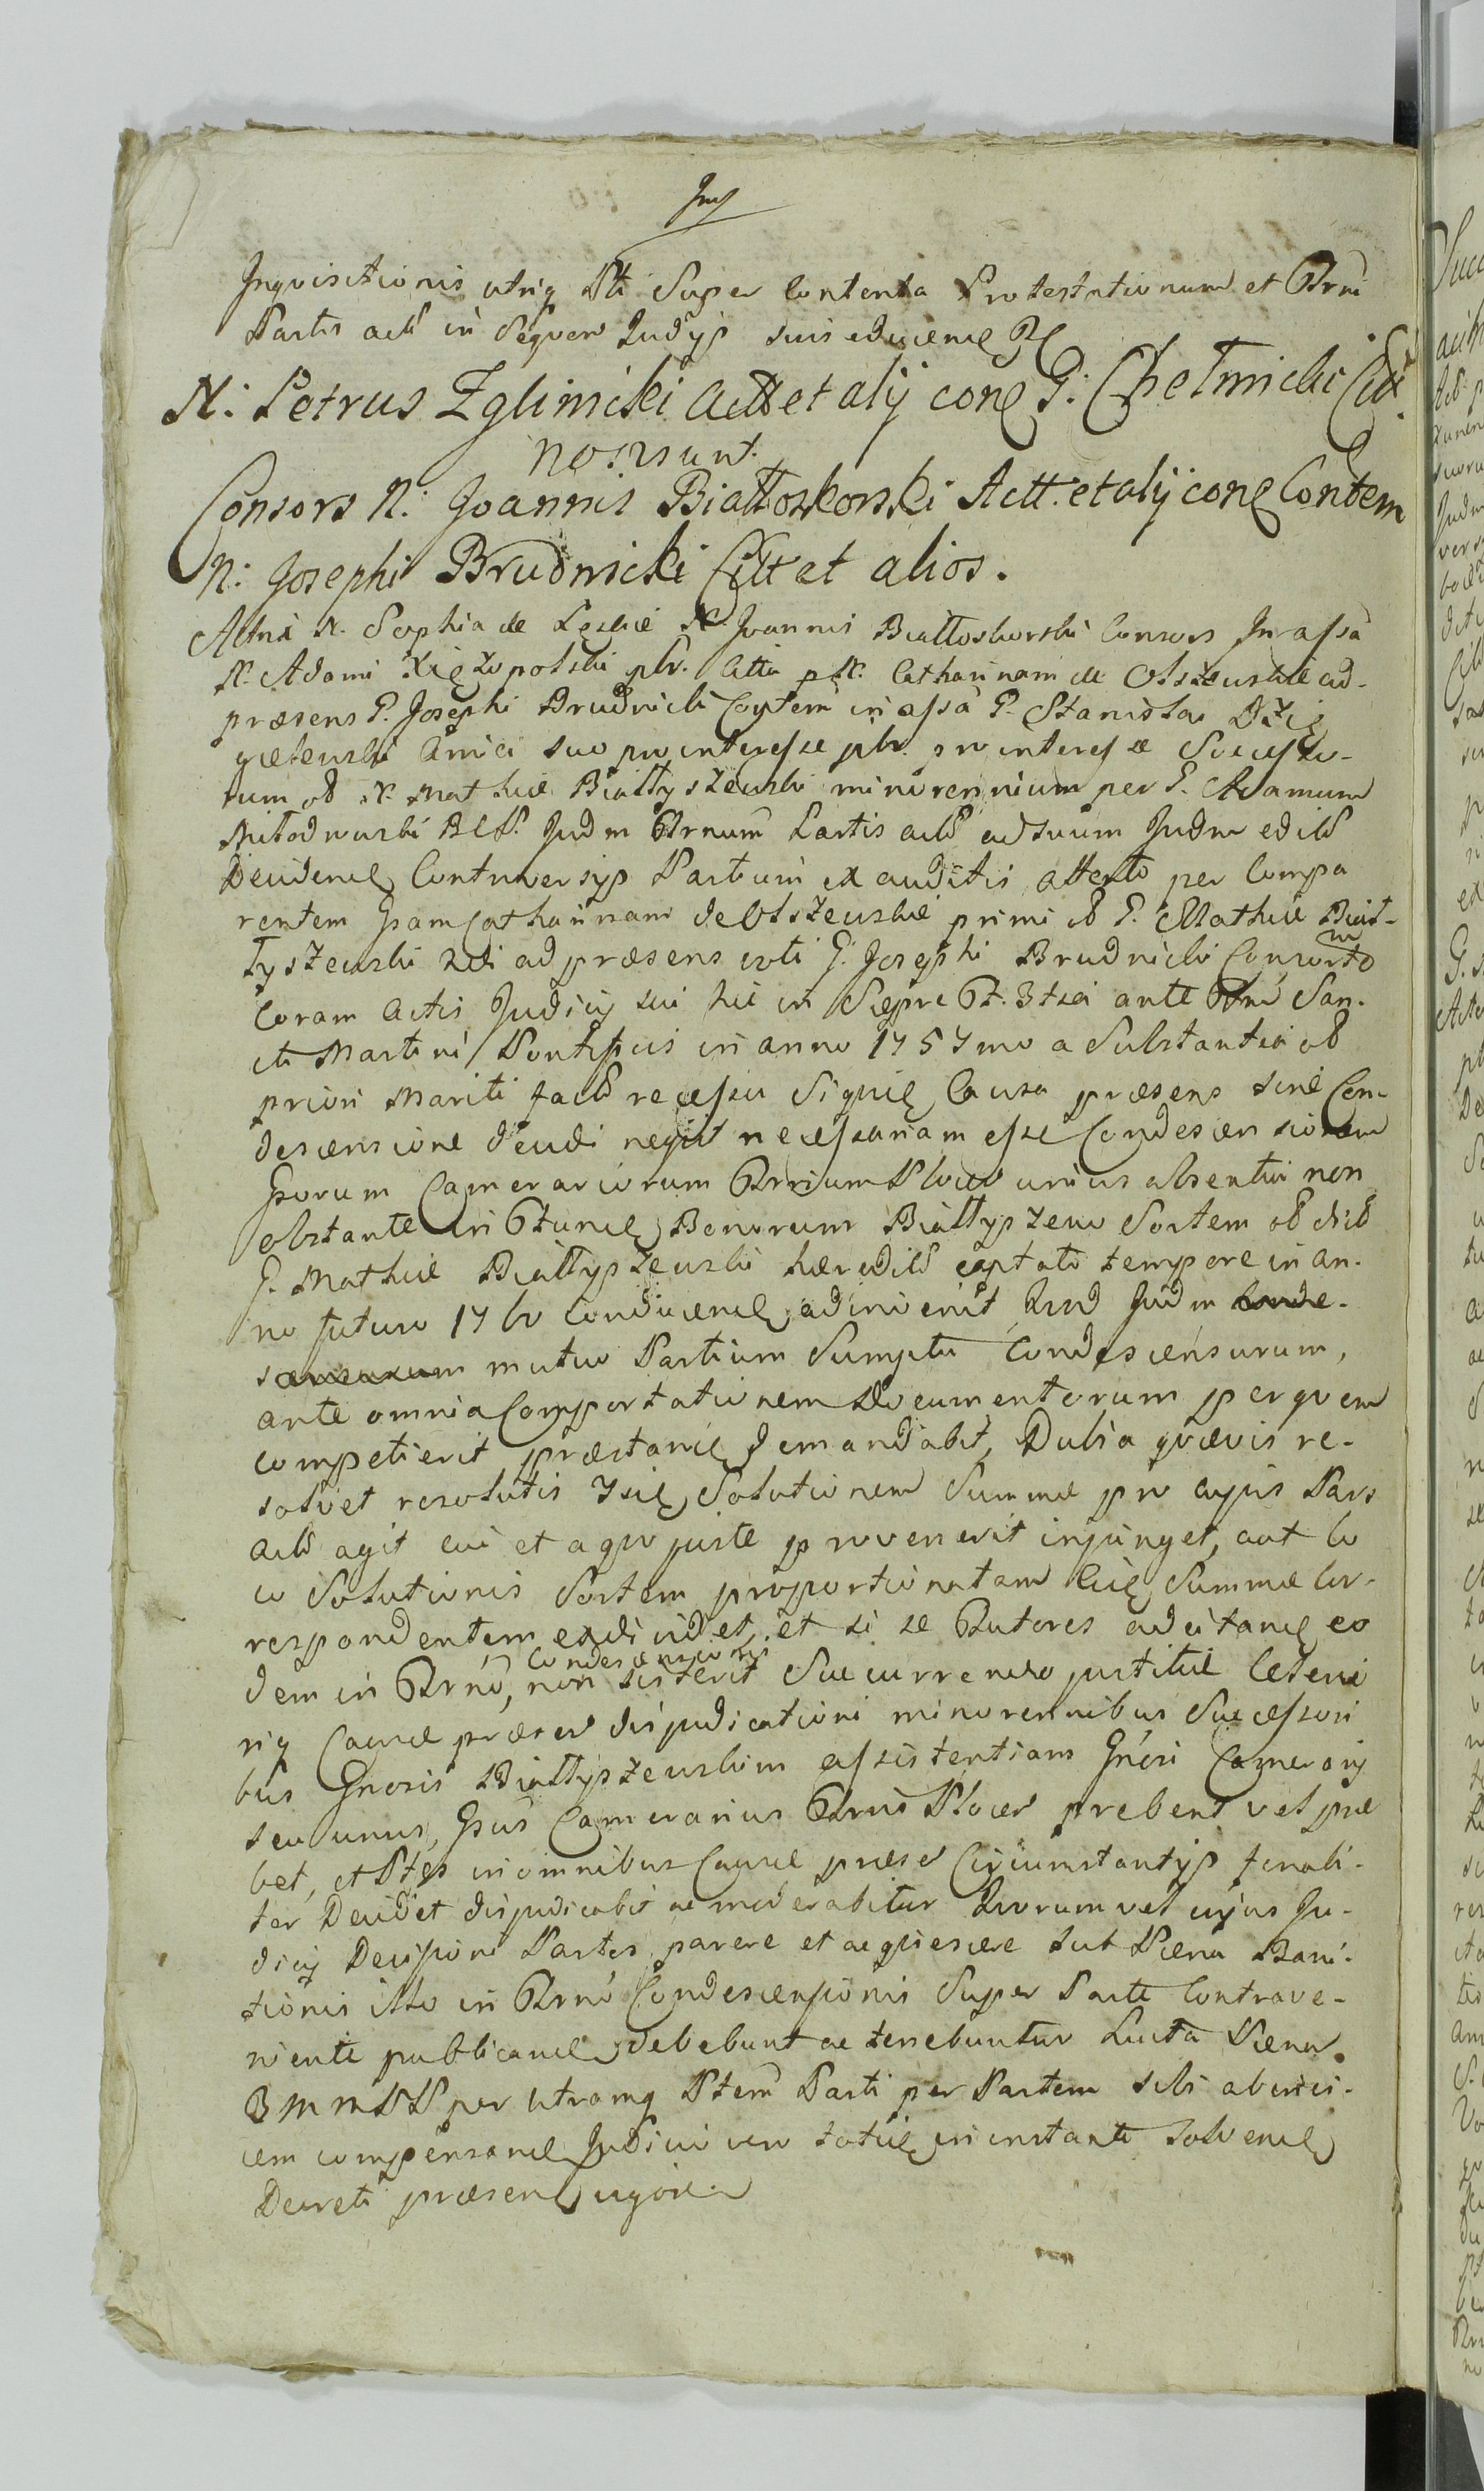 Inq
Inqvisitionis utriq Pti Super Contenta Protestationum et Trni
Partis actt in Seqven Judijs suis educenc
N: Petrus Zglinicki Actt et alij conc G: Chełmicki Citt
non sunt.
Consors N: Joannis Białłoskorski Actt. et alij conc Contem
N: Josephi Brudnicki Citt et alios.
Actrix N. Sophia de N. Joannis Białłoskorski Consors In assa
N. Adami Xięzopolski plr. Citta p N. Catharinam de Olszewskie ad-
præsens G. Josephi Brudnicki Coytem in assa G. Stanislai
Amici suo pro interesse plr. pro interesse Successo-
rum ol N. Mathiæ Białłyszewski minorennium per G. Adamum
Miłodrowski Judm Trnum Partis actt ad suum Judm
Decidenc Controversijs Partium ex auditis, attento per Compa
rentem Gsam Catharinam de Olszewskie primi ol G. Mathiæ Biał-
łyszewski 2di ad præsens voti G. Josephi Brudnicki Consorto
m
Coram Actis Judicij sui hic in Sierpc ante Trnu San-
cti Martini Pontificis in anno 1757mo a Substantia ol
priori Mariti factt recessu Causa præsens sine Con-
descensione decidi neqvit necessariam esse Condescensionem
Gsorum Camerariorum Trrium Plocen unius absentia non
obstante in Bonorum Białłyszewo Sortem ol
G. Mathiæ Białłyszewski captato tempore in an-
no futuro 1760 Conducenc adinvenit, Qvod Judm conde-
scensurum mutuo Partium Sumptu Condescensurum,
ante omnia Comportationem Documentorum per qvem
competierit præstanc demandabit, Dubia qvævis re-
solvet resolutis Solutionem Summæ pro cujus Pars
actt agit cui et a qvo juste provenerit injunget, aut lo
co Solutionis Sortem proportionatam Summæ Cor-
respondentem exdividet, et si se Tutores ad citanc eo
dem in Trno, non sisterit Succurrendo justitiæ
Condescensionis
riq Causæ præsen disjudicationi minorennibus Successori
bus Gnosis Białłyszewskim assistentiam Gnosi Camerarij
seu unus, Gsus Camerarius Trrius Plocen prebent vel præ
bet, et Ptes in omnibus Causæ præsen Circumstantijs finali-
ter Decidet disjudicabit ac moderabitur Qvorum vel cujus Ju-
dicij Decisioni Partes parere et acqviescere sub Pæna Bani-
tionis isto in Trno Condescensionis Super Parte Contrave-
niente publicanc debebunt ac tenebuntur Luita Pæna
3 M m P P per utramq Ptem Parti per Partem sibi abinvi-
cem compensanc Judicio vero totie in instanti Solvenc
Decreti præsen vigore